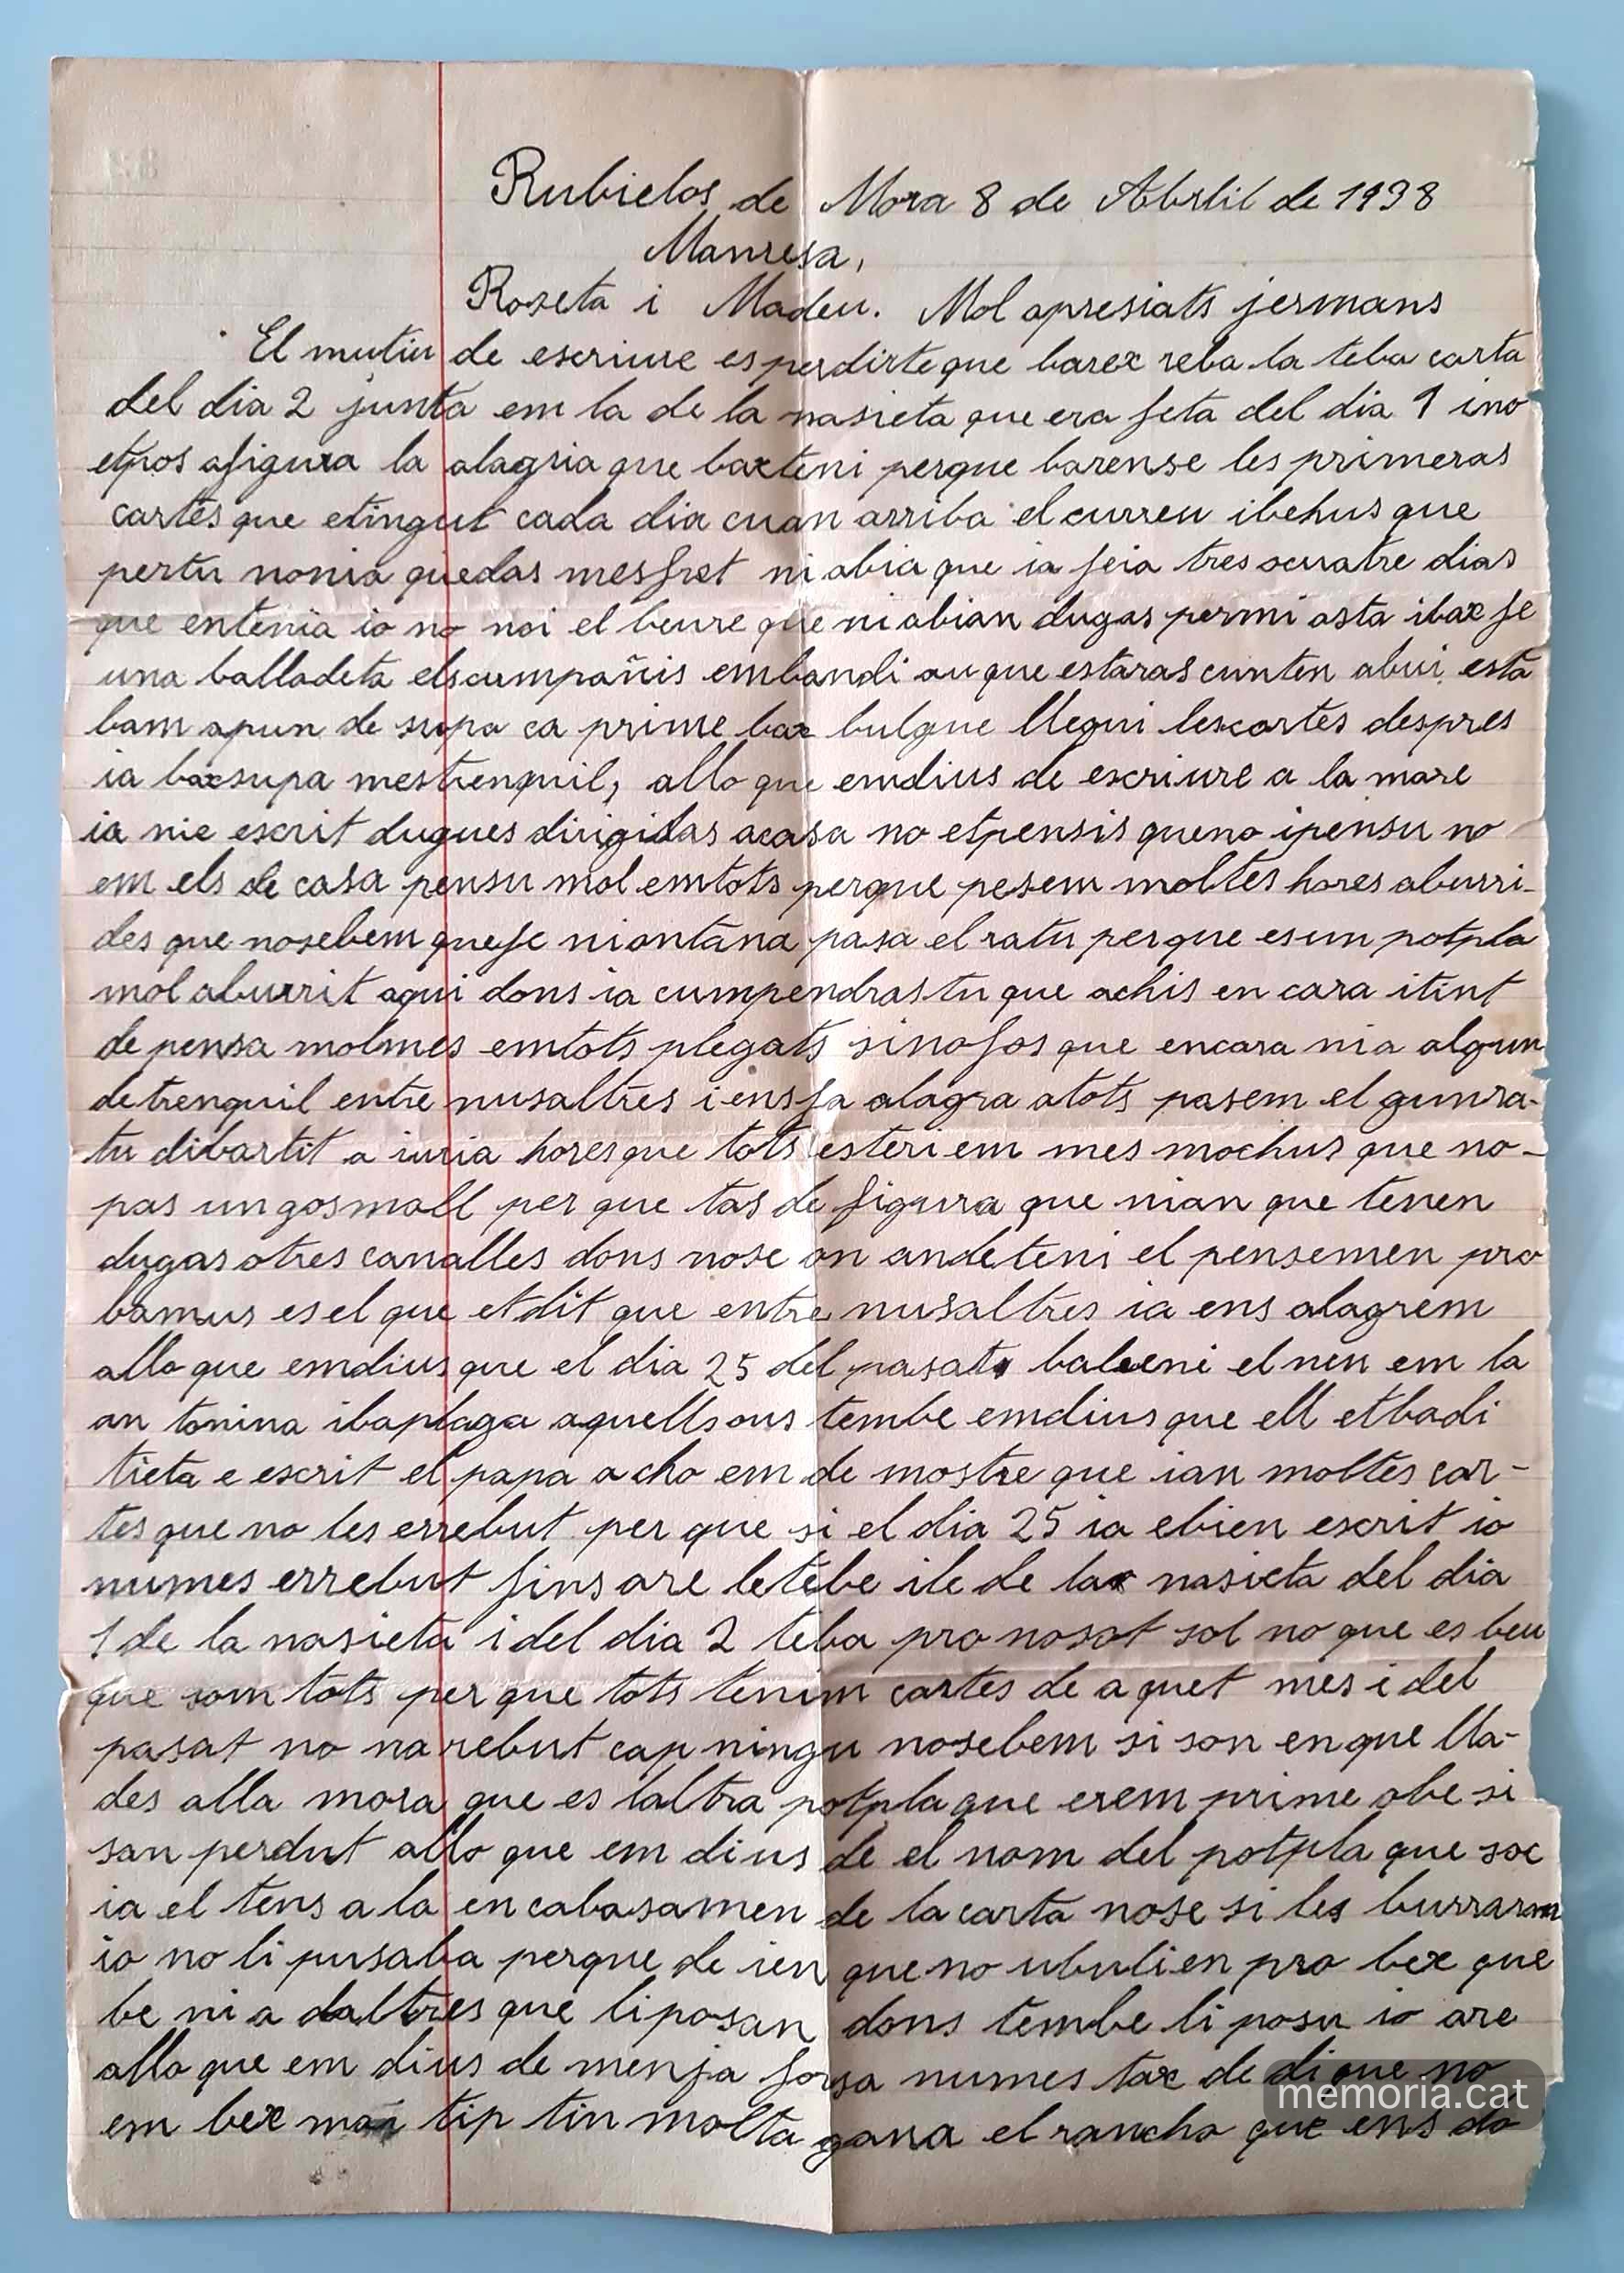 Rubielos de Mora 8 de Abrlil de 1938
Manresa,
Roseta i Madeu. Mol apresiats jermans
El mutiu de escriure es perdirte que barex reba la teba carta
del dia 2 junta em la de la nasieta que era feta del dia 1 ino
etpos afigura la alagria que baxteni perque barense les primeras
cartes que etingut cada dia cuan arriba el curreu ibehus que
pertu nonia quedas mesfret ni abia que ia feia tres ocuatre dias
que entenia io no noi el beure que ni abian dugas permi asta ibax fe
una balladeta elscumpañis embandi au que estaras cunten abui esta
bam apun de supa ca prime bax bulgue llegui lescartes despres
ia baxsupa mestrenquil, allo que emdius de escriure a la mare
ia nie escrit dugues dirigidas acasa no etpensis queno ipensu no
em els de casa pensu mol emtots perque pesem moltes hores aburri-
des que nosebem quefe niontana pasa el ratu perque esun potpla
mol aburrit aqui dons ia cumpendras tu que achis en cara itint
de pensa molmes emtots plegats sinofos que encara nia algun
de trenquil entre nusaltres i ensfa alagra atots pasem el gunra-
tu dibartit a iuria horesque tots esteriem mes mochus que no-
pas un gosmall per que tas de figura que nian que tenen
dugas otres canalles dons nose on andeteni el pensemen pro
bamus es el que etdit que entre nusaltres ia ens alagrem
allo que emdius que el dia 25 del pasat baleeni el nen em la
an tonina ibaplaga aquells ous tembe emdius que ell etbadi
tieta e escrit el papa acho em de mostre que ian moltes car-
tes que no les errebut per que si el dia 25 ia ebien escrit io
numes errebut fins are letebe ile de la nasieta del dia
1 de la nasieta i del dia 2 teba pro nosot sol no que es beu
que som tots per que tots tenim cartes de aquet mes i del
pasat no na rebut cap ningu nosebem si son enque lla-
des alla mora que es laltra potpla que erem prime abe si
san perdut allo que em dius de el nom del potpla que soc
ia el tens a la en cabasamen de la carta nose si les burraram
io no li pusaba perque de ien que no ubulien pro bex que
be ni a daltres que liposan dons tembe li posu io are
allo que em dius de menja forsa numes tax de di que no
em bex mai tip tin molta gana el rancho que ens do
memoria.cat